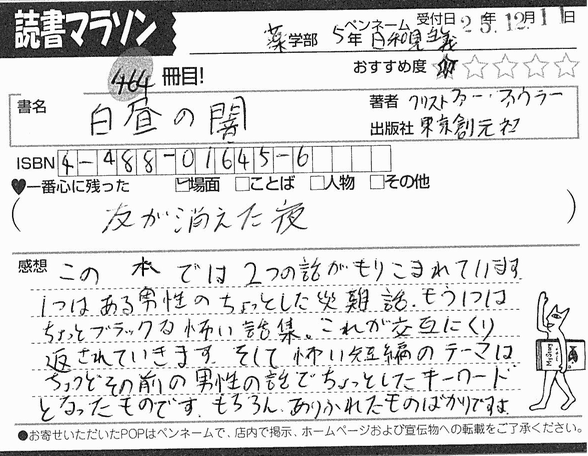 読書マラソン
ペンネーム 受付日 25年12月11日
薬学部 5年 日和見主義
464冊目! おすすめ度 ☆☆☆☆☆
書名 白昼の闇
著者 クリストファー・ファウラー
出版社 東京創元社
ISBN 4-488-01645-6
♥一番心に残った ☑場面 □ことば □人物 □その他
(友が消えた夜)
感想 この本では2つの話がもりこまれています。
1つはある男性のちょっとした災難話.もう1つは
ちょっとブラックな怖い話集。これが交互にくり
返されていきます.そして怖い短編のテーマは
ちょうどその前の男性の話でちょっとしたキーワード
となったものです.もちろん.ありふれたものばかりですよ.
●お寄せいただいたPOPはペンネームで、店内で掲示、ホームページおよび宣伝物への転載をご了承ください。